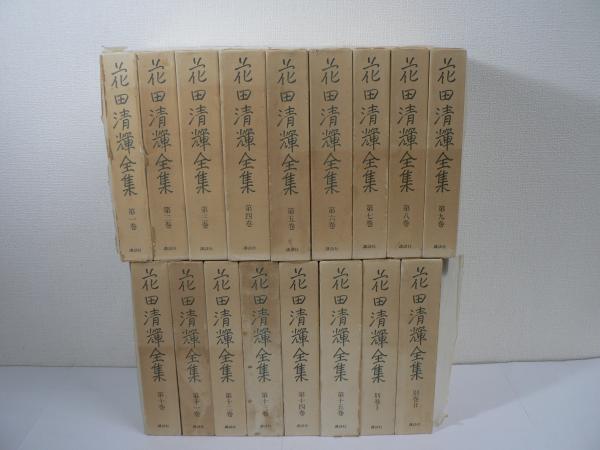 花田清輝全集 第一巻 講談社
花田清輝全集 第二巻 講談社
花田清輝全集 第三巻 講談社
花田清輝全集 第四巻 講談社
花田清輝全集 第五巻 講談社
花田清輝全集 第六巻 講談社
花田清輝全集 第七巻 講談社
花田清輝全集 第八巻 講談社
花田清輝全集 第九巻 講談社
花田清輝全集 第十巻 講談社
花田清輝全集 第十一巻 講談社
花田清輝全集 第十二巻 講談社
花田清輝全集 第十三巻 講談社
花田清輝全集 第十四巻 講談社
花田清輝全集 第十五巻 講談社
花田清輝全集 別巻I 講談社
花田清輝全集 別巻II 講談社